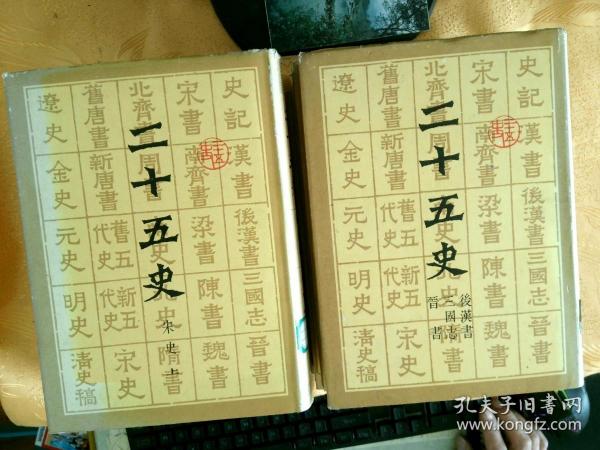 二十五史
宋史上
史記
漢書
後漢書
三國志
晉書
宋書
南齊書
梁書
陳書
魏書
北齊書
周書
隋書
舊唐書
新唐書
舊五代史
新五代史
宋史
遼史
金史
元史
明史
清史稿
二十五史
後漢書
三國志
晉書
史記
漢書
後漢書
三國志
晉書
宋書
南齊書
梁書
陳書
魏書
北齊書
周書
隋書
舊唐書
新唐書
舊五代史
新五代史
宋史
遼史
金史
元史
明史
清史稿
孔夫子旧书网
www.kongfz.com